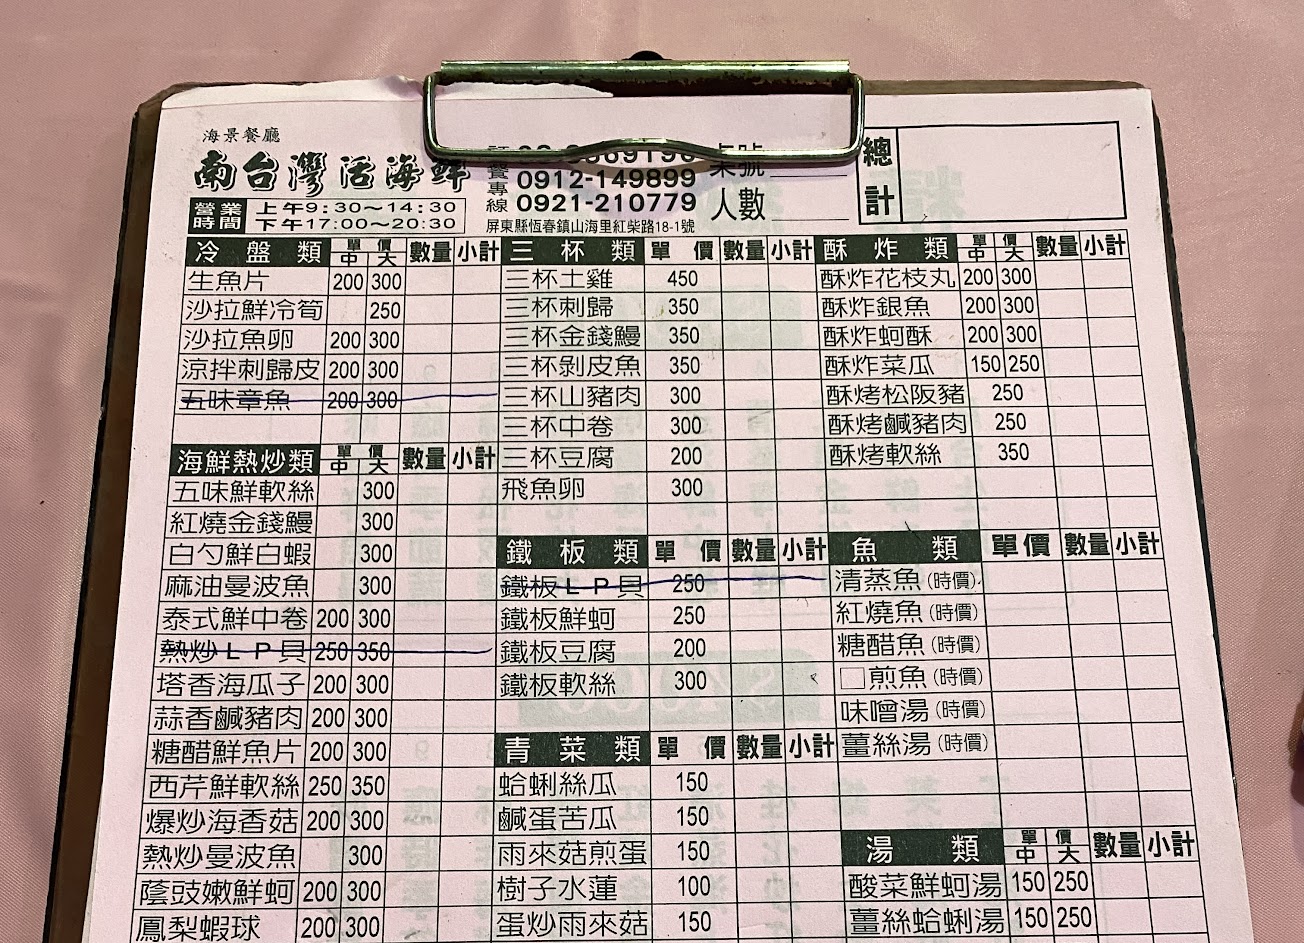 海景餐廳
南台灣活海鮮
營業時間 上午9:30~14:30
下午17:00~20:30
訂餐專線
0912-149899
0921-210779
屏東縣恆春鎮山海里紅柴路18-1號
桌號
人數
總計
冷盤類 單價 中 大 數量 小計
生魚片 200 300
沙拉鮮冷筍 250
沙拉魚卵 200 300
涼拌刺歸皮 200 300
五味章魚 200 300
海鮮熱炒類 單價 中 大 數量 小計
五味鮮軟絲 300
紅燒金錢鰻 300
白勺鮮白蝦 300
麻油曼波魚 300
泰式鮮中卷 200 300
熱炒LP貝 250 350
塔香海瓜子 200 300
蒜香鹹豬肉 200 300
糖醋鮮魚片 200 300
西芹鮮軟絲 250 350
爆炒海香菇 200 300
熱炒曼波魚 300
蔭豉嫩鮮蚵 200 300
鳳梨蝦球 200 300
三杯類 單價 數量 小計
三杯土雞 450
三杯刺歸 350
三杯金錢鰻 350
三杯剝皮魚 350
三杯山豬肉 300
三杯中卷 300
三杯豆腐 200
飛魚卵 300
鐵板類 單價 數量 小計
鐵板LP貝 250
鐵板鮮蚵 250
鐵板豆腐 200
鐵板軟絲 300
青菜類 單價 數量 小計
蛤蜊絲瓜 150
鹹蛋苦瓜 150
雨來菇煎蛋 150
樹子水蓮 100
蛋炒雨來菇 150
酥炸類 單價 中 大 數量 小計
酥炸花枝丸 200 300
酥炸銀魚 200 300
酥炸蚵酥 200 300
酥炸菜瓜 150 250
酥烤松阪豬 250
酥烤鹹豬肉 250
酥烤軟絲 350
魚類 單價 數量 小計
清蒸魚(時價)
紅燒魚(時價)
糖醋魚(時價)
□煎魚(時價)
味噌湯(時價)
薑絲湯(時價)
湯類 單價 中 大 數量 小計
酸菜鮮蚵湯 150 250
薑絲蛤蜊湯 150 250